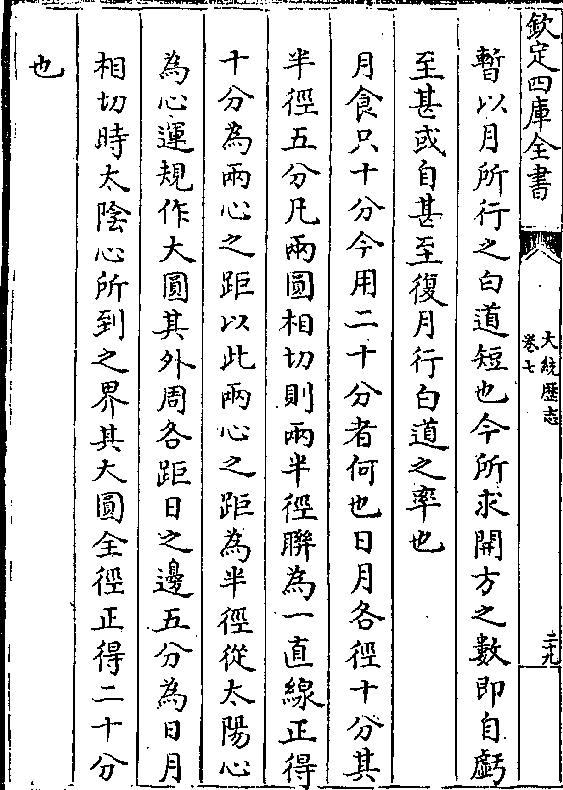 欽定四庫全書
大統歷志
卷七
二十九
暫以月所行之白道短也今所求開方之數即自虧
至甚或自甚至復月行白道之率也
月食只十分今用二十分者何也日月各徑十分其
半徑五分凡兩圓相切則兩半徑聨為一直線正得
十分為兩心之距以此兩心之距為半徑從太陽心
為心運規作大圓其外周各距日之邊五分為日月
相切時太陰心所到之界其大圓全徑正得二十分
也